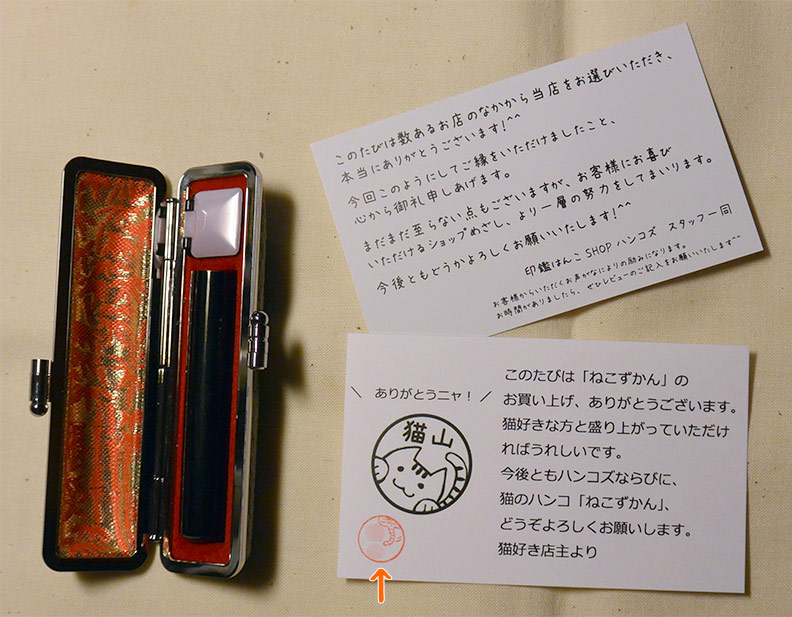 このたびは数あるお店のなかから当店をお選びいただき、
本当にありがとうございます!^^
今回このようにしてご縁をいただけましたこと、
心から御礼申しあげます。
まだまだ至らない点もございますが、お客様にお喜び
いただけるショップめざし、より一層の努力をしてまいります。
今後ともどうかよろしくお願いいたします!^^
印鑑はんこSHOPハンコズ スタッフ一同
お客様からいただくお声がなによりの励みになります。
お時間がありましたら、ぜひレビューのご記入をお願いいたします^^
\ ありがとうニャ! /
猫山
このたびは「ねこずかん」の
お買い上げ、ありがとうございます。
猫好きな方と盛り上がっていただけ
ればうれしいです。
今後ともハンコズならびに、
猫のハンコ「ねこずかん」、
どうぞよろしくお願いします。
猫好き店主より